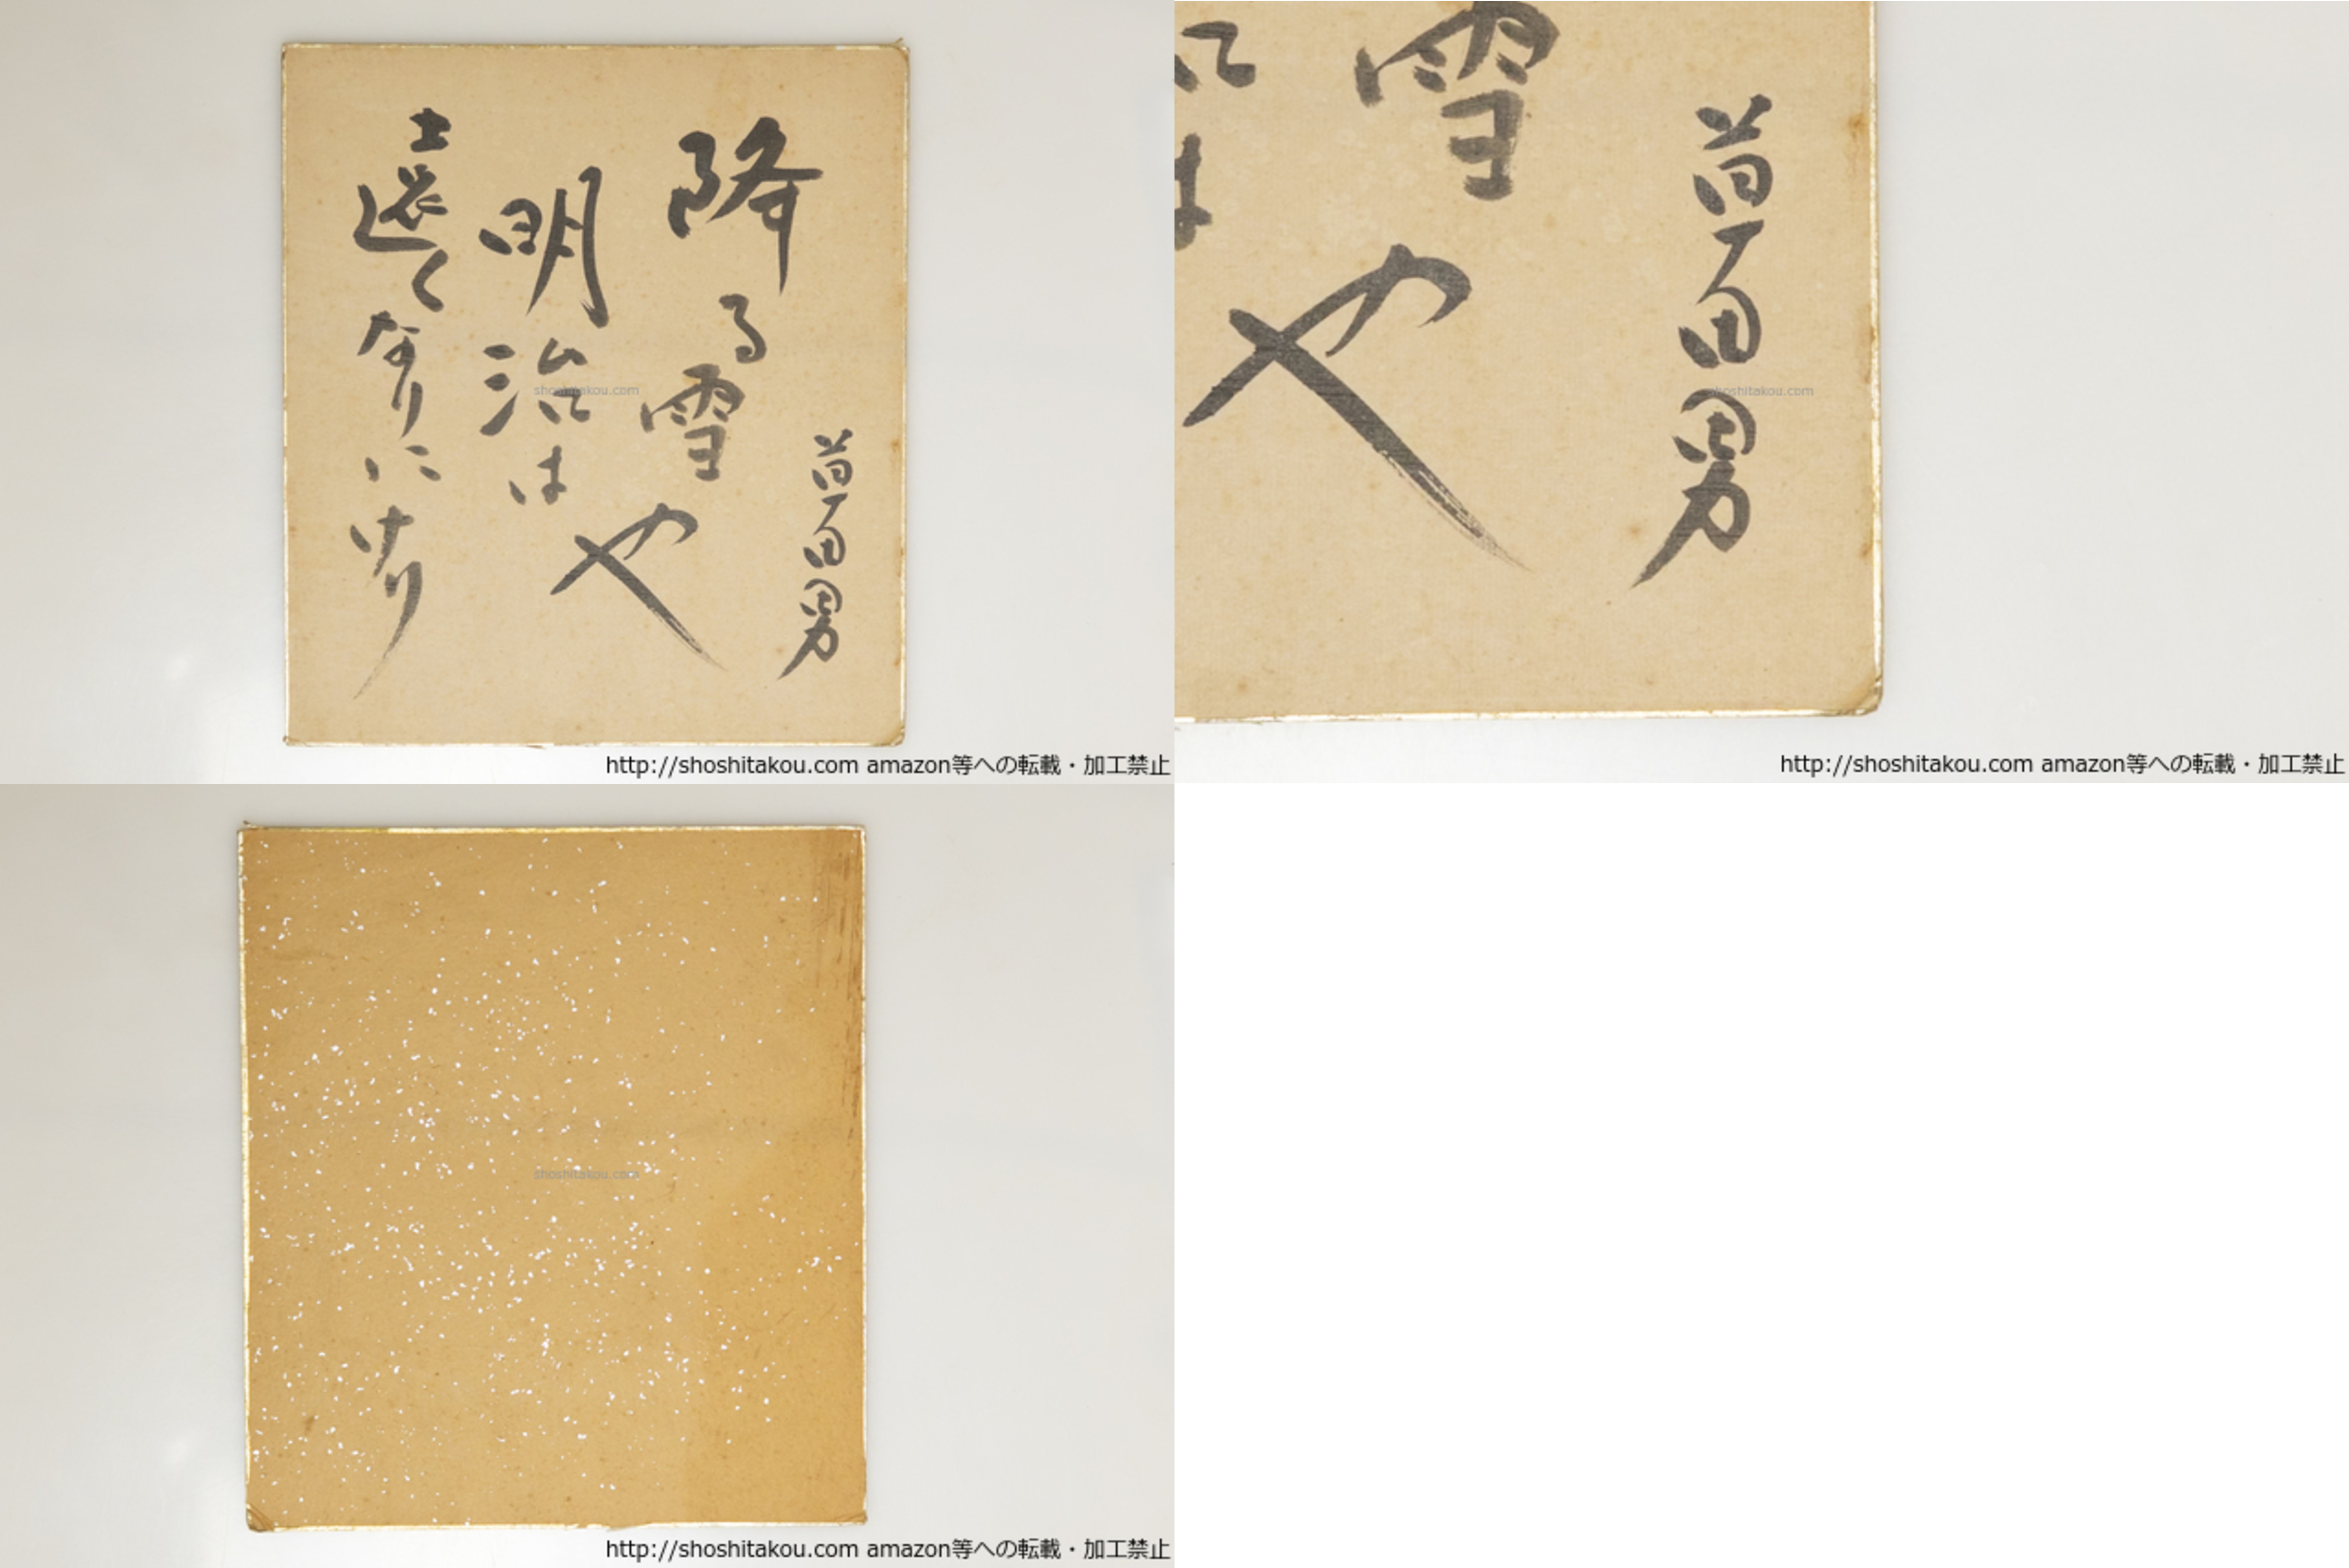 降る雪や
明治は
遠くなりにけり
草田男
shoshitakou.com
http://shoshitakou.com amazon等への転載・加工禁止
雪
や
は
草田男
shoshitakou.com
http://shoshitakou.com amazon等への転載・加工禁止
shoshitakou.com
http://shoshitakou.com amazon等への転載・加工禁止